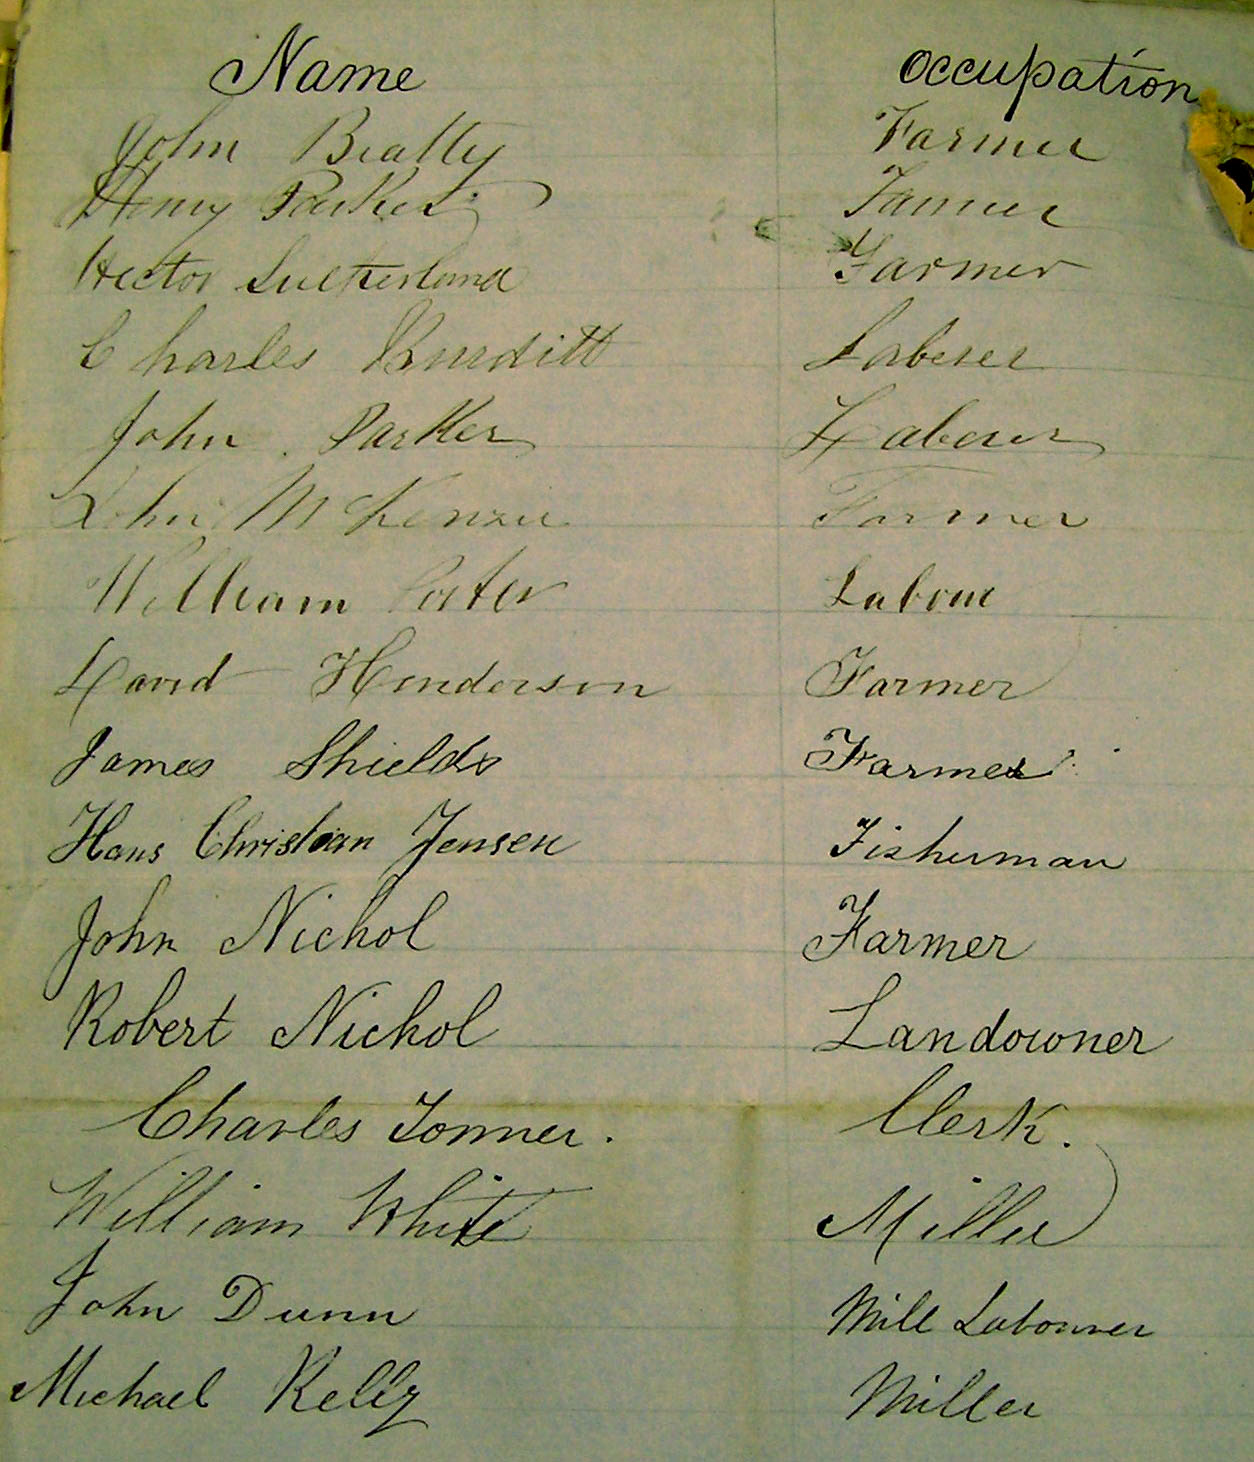 Name Occupation
John Beatty Farmer
Henry Parker Farmer
Hector Sutherland Farmer
Charles Burditt Laberer
John Parker Laberer
John McKenzie Farmer
William Porter Labour
David Henderson Farmer
James Shields Farmer
Hans Christian Jensen Fisherman
John Nichol Farmer
Robert Nichol Landowner
Charles Tonner. Clerk.
William White Miller
John Dunn Mill Labourer
Michael Kelly Miller